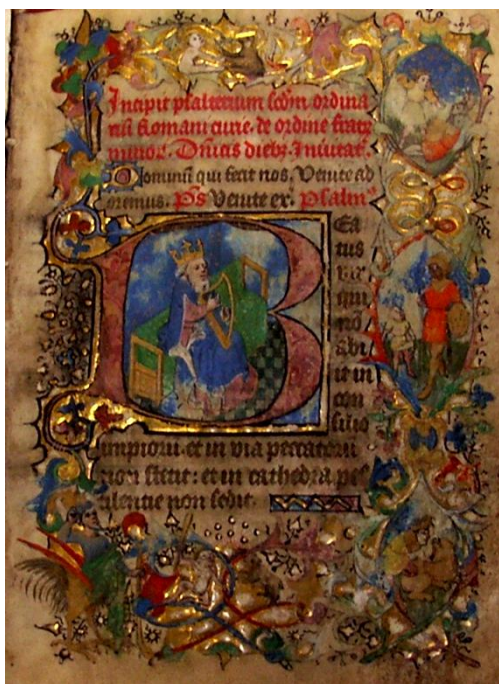 Incipit psalterium scdm ordina
rii Romani curie de ordine fratrꝝ
minoꝝ. Dnicis diebꝫ Inuitatꝭ.
Dominū qui fecit nos. Venite ad
oremus. Ps Venite exꝭ. Psalmꝰ
Bea
tus
vir
qui
nō
abi
it in
con
silio
impiorū. et in via peccatorū
non stetit: et in cathedra pes
tilentie non sedit.